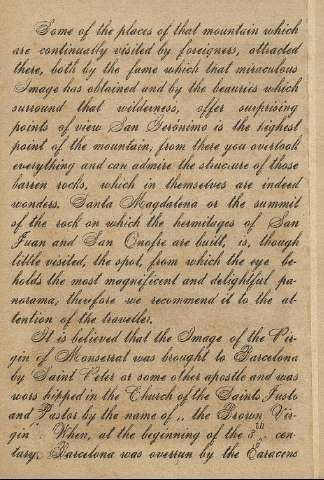 Some of the places of that mountain which
are continually visited by foreigners, attracted
there, both by the fame which that miraculous
Image has obtained and by the beauties which
surround that wilderness, offer surprising
points of view San Gerónimo is the highest
point of the mountain, from there you overlook
everything and can admire the strucure of those
barren rocks, which in themselves are indeed
wonders. Santa Magdalena or the summit
of the rock on which the hermitages of San
Juan and San Onofre are built, is, though
little visited, the spot, from which the eye be-
holds the most magnificent and delightful pa-
norama, therefore we recommend it to the at-
tention of the traveller.
It is believed that the Image of the Vir-
gin of Monserrat was brought to Barcelona
by Saint Peter or some other apostle and was
worshipped in the Church of the Saints Justo
and Pastor by the name of „ the Brown Vir-
gin". When, at the beginning of the 8th cen-
tury. Barcelona was overrun by the Saracens